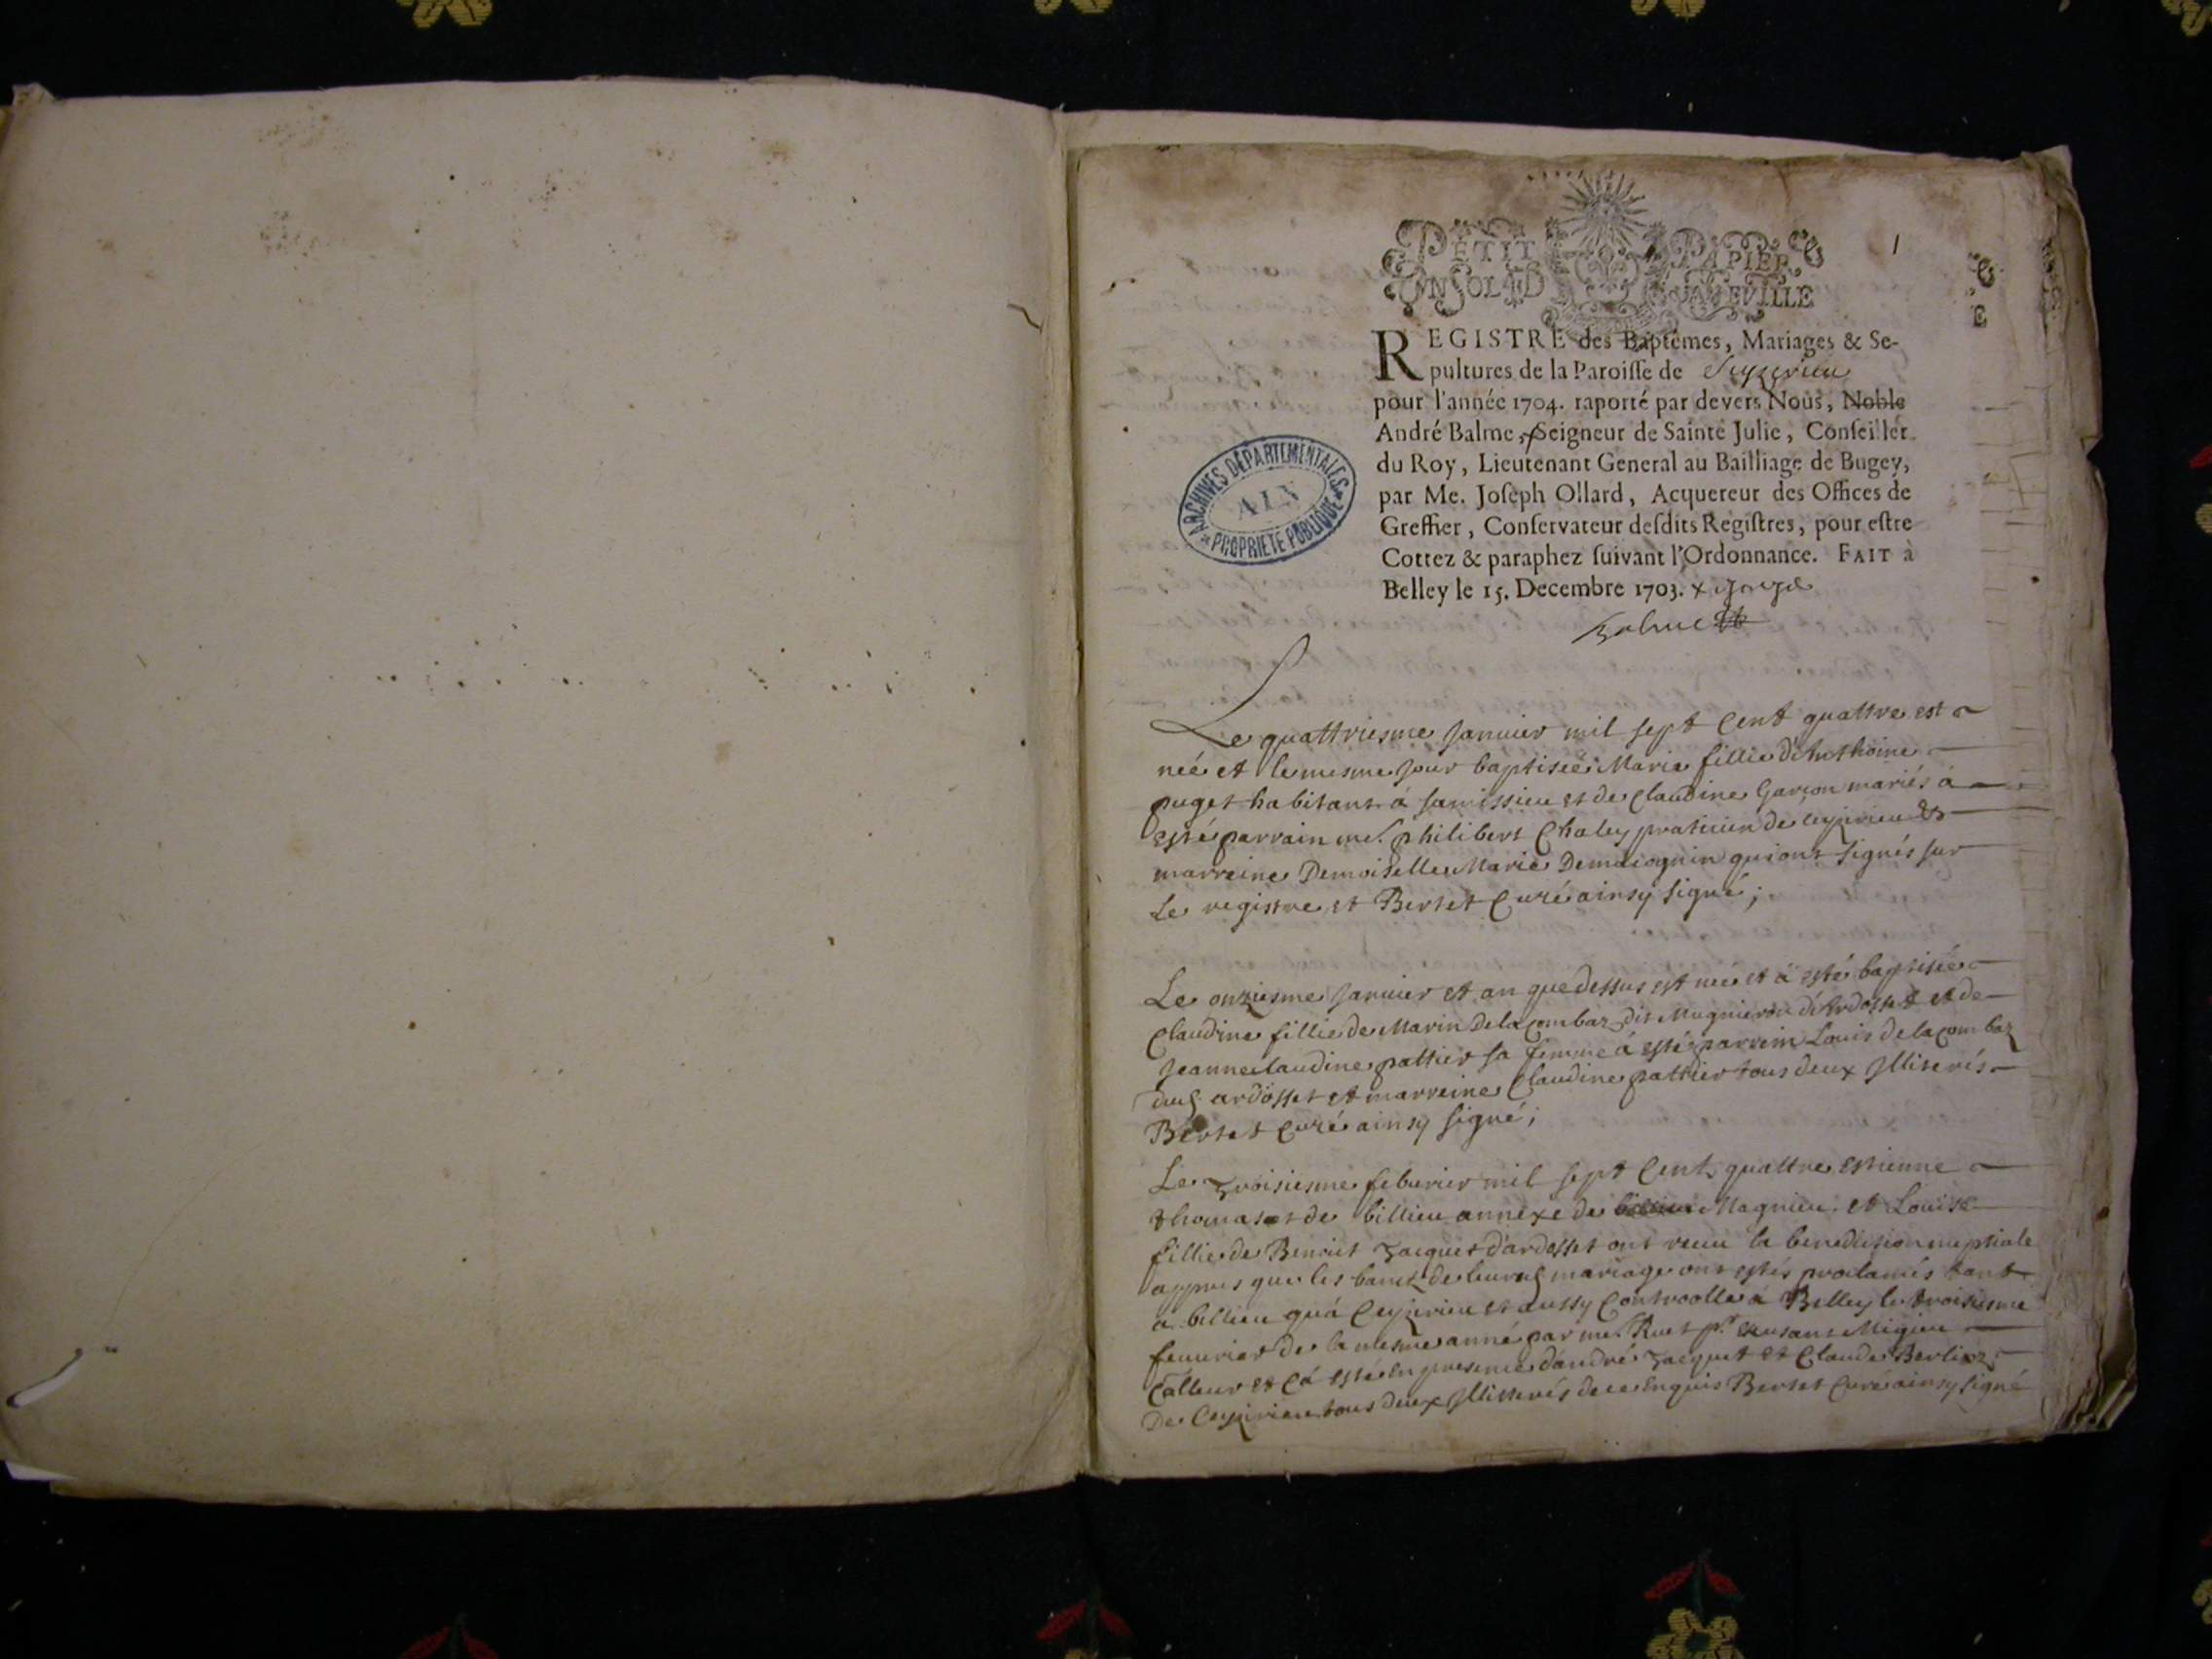 1
PETIT PAPIER
UN SOL 4 D LA FEVILLE
REGISTRE des Baptêmes, Mariages & Se-
pultures de la Paroisse de Seyzerieu
pour l'année 1704. raporté par devers Nous, Noble
André Balme, Seigneur de Sainte Julie, Conseiller
du Roy, Lieutenant General au Bailliage de Bugey,
par Me. Joseph Ollard, Acquereur des Offices de
Greffier, Conservateur desdits Registres, pour estre
Cottez & paraphez suivant l'Ordonnance. FAIT à
Belley le 15. Decembre 1703.
Balme
ARCHIVES DÉPARTEMENTALES
AIN
PROPRIÉTÉ PUBLIQUE
Le quattriesme Janvier mil sept Cent quattre est
née et le mesme jour baptiseé Marie fillie d'Anthoine
puget habitant á samissieu et de Claudine Garçon mariés á
esté parrain me. philibert Chaley praticien de ceyzerieu et
marreine Demoiselle Marie Demaiognin qui ont signés sur
Le registre et Bertet Curé ainsy signé;
Le onziesme Janvier et an que dessus est neé et á esté baptisée
Claudine fillie de Marin Delacombaz dit Mugnier d'Ardosset et de
Jeanneclaudine pattier sa femme á esté parrein Louis delacombaz
dud ardosset et marreine Claudine pattier tous deux Illiterés
Bertet Curé ainsy signé;
Le Troisiesme feburier mil sept Cent quattre Estienne
thomasset de billieu annexe de Magnieu et Louise
fillie de Benoist Jacquet d'ardosset ont receu la benediction nuptiale
appres que les bancz de leurs mariage ont estés proclamés tant
a billieu quá Ceyzerieu et aussy Controolle á Belley le troisiesme
feuurier de la mesme anné par me. Ruet pr. exusant Migieu
et Cá esté en presence d'andré Jacquet et Claude Berlioz
De Ceyzerieu tous deux Illitterés de ce Enquis Bertet Curé ainsy signé